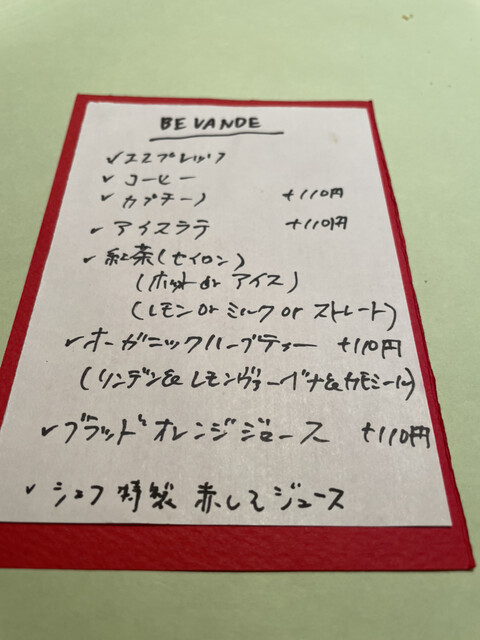 BEVANDE
✓エスプレッソ
✓コーヒー
✓カプチーノ +110円
✓アイスラテ +110円
✓紅茶(セイロン)
(ホット or アイス)
(レモン or ミルク or ストレート)
✓オーガニックハーブティー +110円
(リンデン&レモンヴァーベナ&カモミール)
✓ブラッドオレンジジュース +110円
✓シェフ特製 赤しそジュース